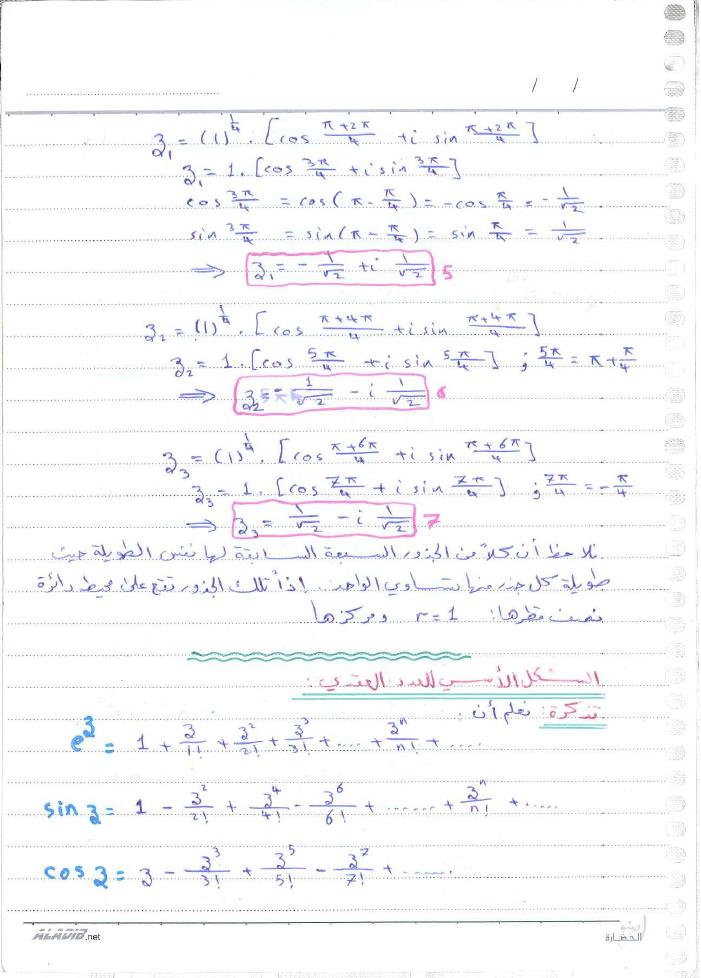 / /
z₁ = (1)^(1/4) · [cos (π+2π)/4 + i sin (π+2π)/4]
z₁ = 1 · [cos 3π/4 + i sin 3π/4]
cos 3π/4 = cos(π - π/4) = -cos π/4 = - 1/√2
sin 3π/4 = sin(π - π/4) = sin π/4 = 1/√2
⇒ z₁ = - 1/√2 + i 1/√2 5
z₂ = (1)^(1/4) · [cos (π+4π)/4 + i sin (π+4π)/4]
z₂ = 1 · [cos 5π/4 + i sin 5π/4] ; 5π/4 = π + π/4
⇒ z₂ = - 1/√2 - i 1/√2 6
z₃ = (1)^(1/4) · [cos (π+6π)/4 + i sin (π+6π)/4]
z₃ = 1 · [cos 7π/4 + i sin 7π/4] ; 7π/4 = - π/4
⇒ z₃ = 1/√2 - i 1/√2 7
نلاحظ أن كلاً من الجذور السبعة السابقة لها نفس الطويلة حيث
طويلة كل جذر منها تساوي الواحد. إذاً تلك الجذور تقع على محيط دائرة
نصف قطرها: r=1 ومركزها
الشكل الأسي للعدد العقدي:
تذكرة: نعلم أن:
e^z = 1 + z/1! + z²/2! + z³/3! + .... + zⁿ/n! + ....
sin z = 1 - z²/2! + z⁴/4! - z⁶/6! + ....... + zⁿ/n! + .....
cos z = z - z³/3! + z⁵/5! - z⁷/7! + ......
ALADIB.net
الحضارة